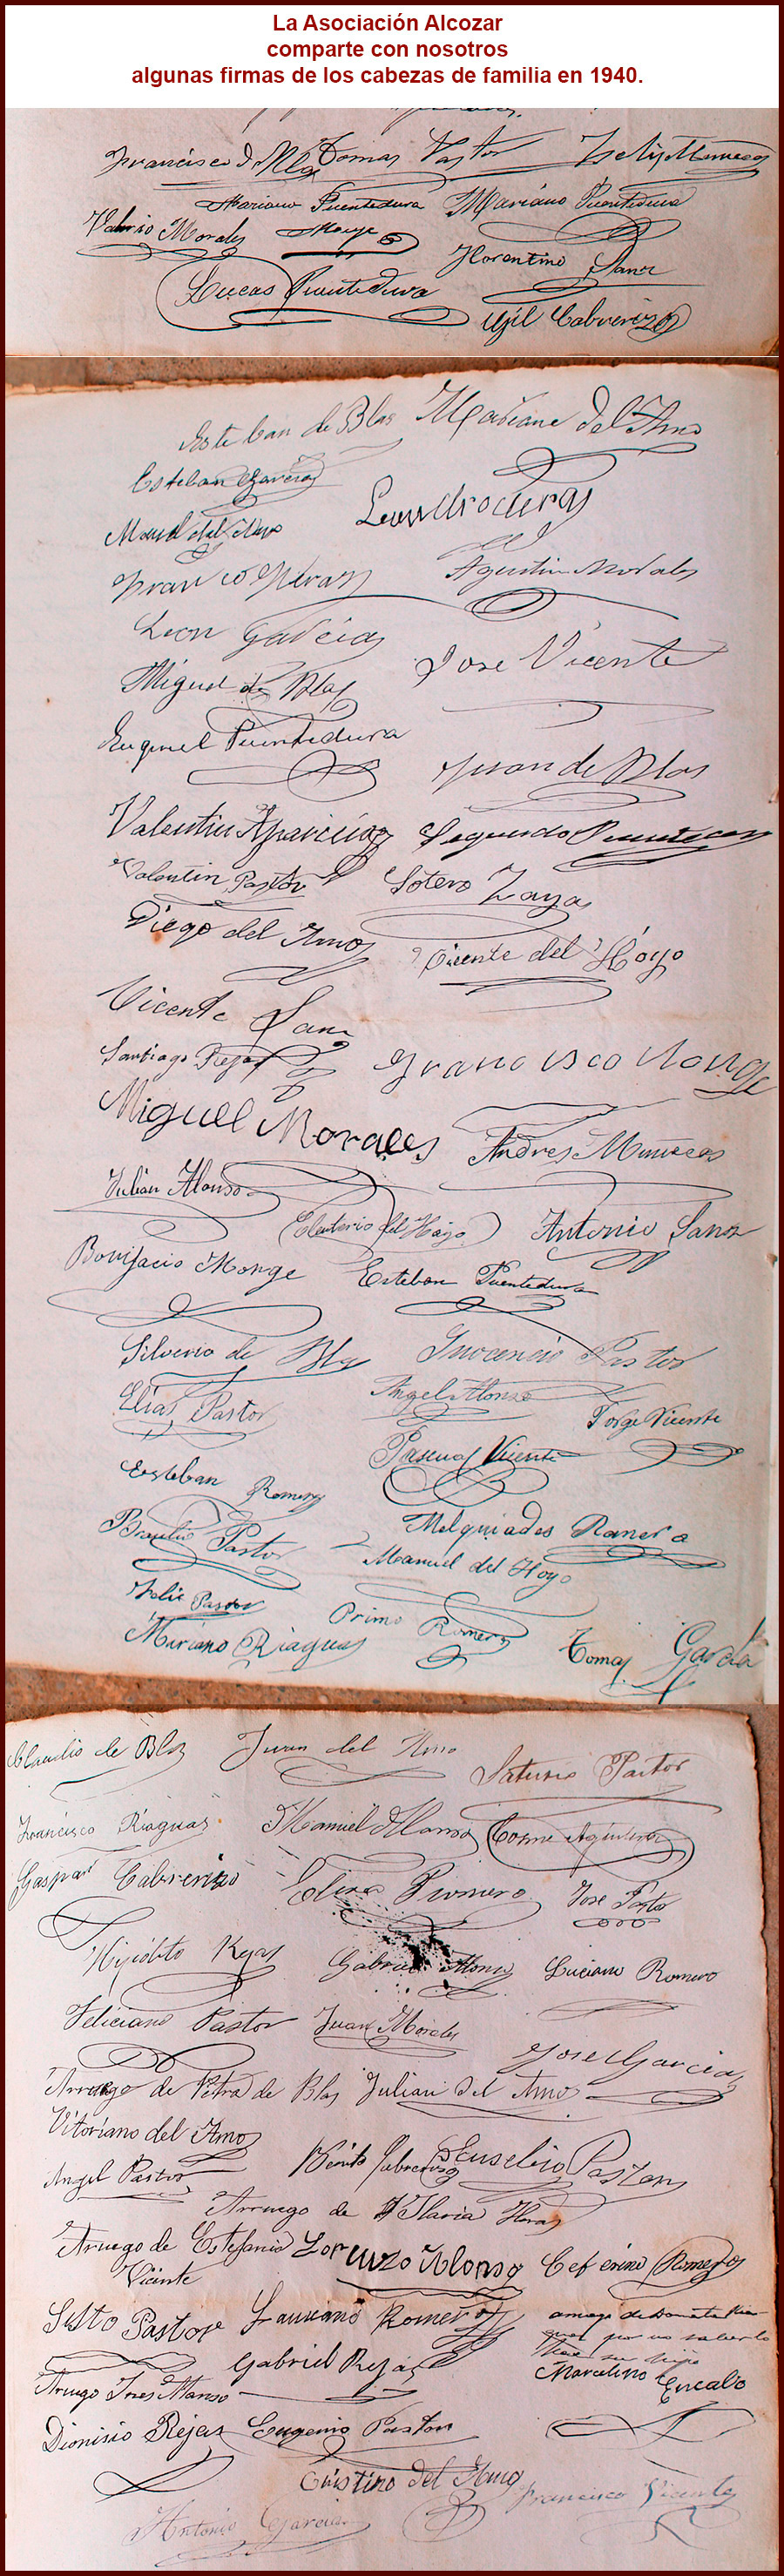 La Asociación Alcozar
comparte con nosotros
algunas firmas de los cabezas de familia en 1940.
Francisco d Blas Tomas Pastor Felix Muñecas
Mariano Puentedura Mariano Puentedura
Valerio Morales Monge
Florentino Sanz
Lucas Puentedura
Gil Cabrerizo
Esteban de Blas Mariano del Amo
Esteban Garcia
Manuel del Amo Leandro
Agustin Morales
Leon Garcia
Jose Vicente
Miguel de Blas
Puentedura
Juan de Blas
Valentin Aparicio Segundo
Valentin Pastor Sotero Zayas
Diego del Amo
Vicente del Hoyo
Vicente Sanz
Santiago Rejas Francisco Monge
Miguel Morales
Andres Muñecas
Julian Alonso
Eleuterio del Hoyo Antonio Sanz
Bonifacio Monge Esteban Puentedura
Silverio de Blas Inocencio Pastor
Elias Pastor Angel Alonso
Jorge Vicente
Pascual Vicente
Esteban Romero
Braulio Pastor Melquiades Ranera
Manuel del Hoyo
Felix Pastor
Primo Romero
Mariano Riaguas Tomas Garcia
Claudio de Blas Juan del Amo
Saturio Pastor
Francisco Riaguas Manuel Alonso Cosme Aguilera
Gaspar Cabrerizo Romero Jose Pastor
Hipólito Rejas Gabriel Alonso Luciano Romero
Feliciano Pastor Juan Morales
Jose Garcia
Arruego de Petra de Blas Julian del Amo
Vitoriano del Amo
Angel Pastor Benito Cabrerizo Eusebio Pastor
Arruego de Ylaria Heras
Aruego de Estefania Lorenzo Alonso Ceferino Romero
Vicente
Sisto Pastor Romero
por no saberlo
hace su hijo
Gabriel Rejas Marcelino Encabo
Aruego Ines Alonso
Dionisio Rejas Eugenio Pastor
Cristino del
Antonio Garcia Francisco Vicente